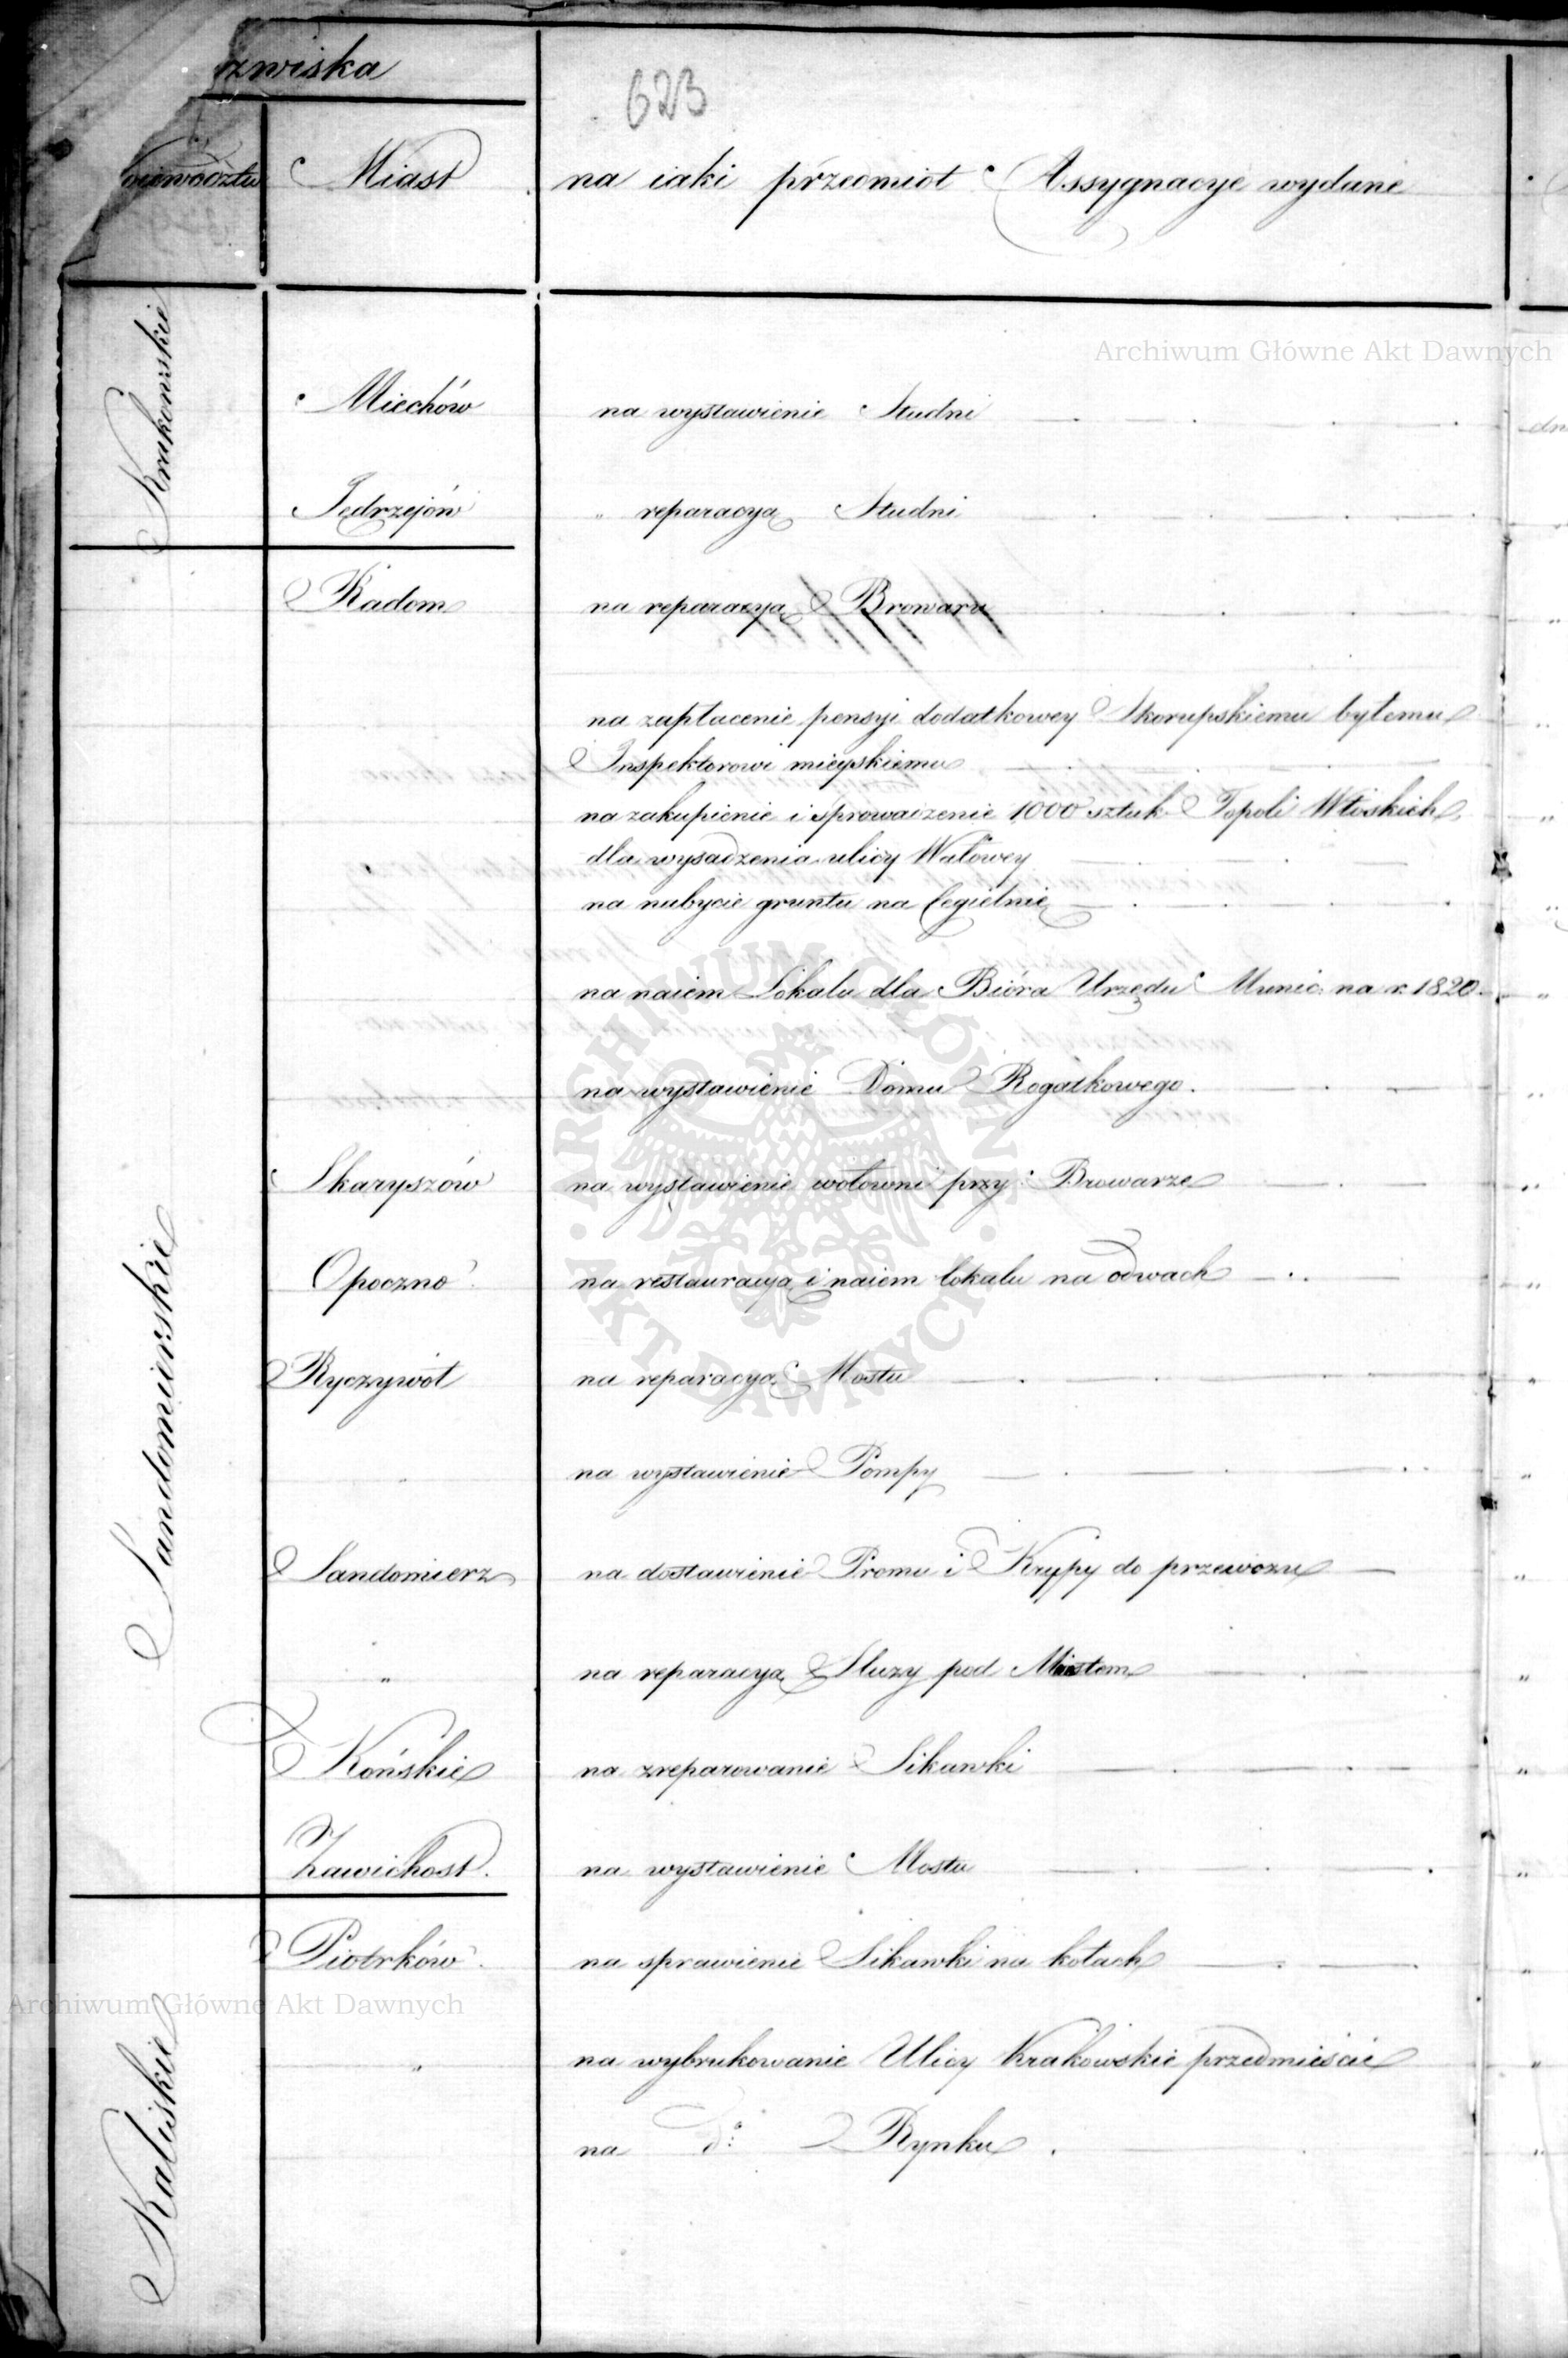 zwiska
623
Miast
na iaki przedmiot Assygnacye wydane
Archiwum Główne Akt Dawnych
Krakowskie
Miechów
na wystawienie Studni
Jędrzejów
" reparacyą Studni
Sandomierskie
Radom
na reparacyą Browaru
na zapłacenie pensyi dodatkowey Skorupskiemu byłemu
Inspektorowi mieyskiemu
na zakupienie i sprowadzenie 1000 sztuk Topoli Włoskich
dla wysadzenia ulicy Wałowey
na nabycie gruntu na Cegielnię
na naiem Lokalu dla Bióra Urzędu Munic. na r. 1820
na wystawienie Domu Rogatkowego.
Skaryszów
na wystawienie wołowni przy Browarze
Opoczno
na restauracyą i naiem lokalu na odwach
Ryczywół
na reparacyą Mostu
"
na wystawienie Pompy
Sandomierz
na dostawienie Promu i Krypy do przewozu
"
na reparacyą Sluzy pod Miastem
Końskie
na zreparowanie Sikawki
Zawichost.
na wystawienie Mostu
Kaliskie
Piotrków.
na sprawienie Sikawki na kołach
"
na wybrukowanie Ulicy Krakowskie przedmieście
na do: Rynku.
Archiwum Główne Akt Dawnych
ARCHIWUM GŁÓWNE AKT DAWNYCH